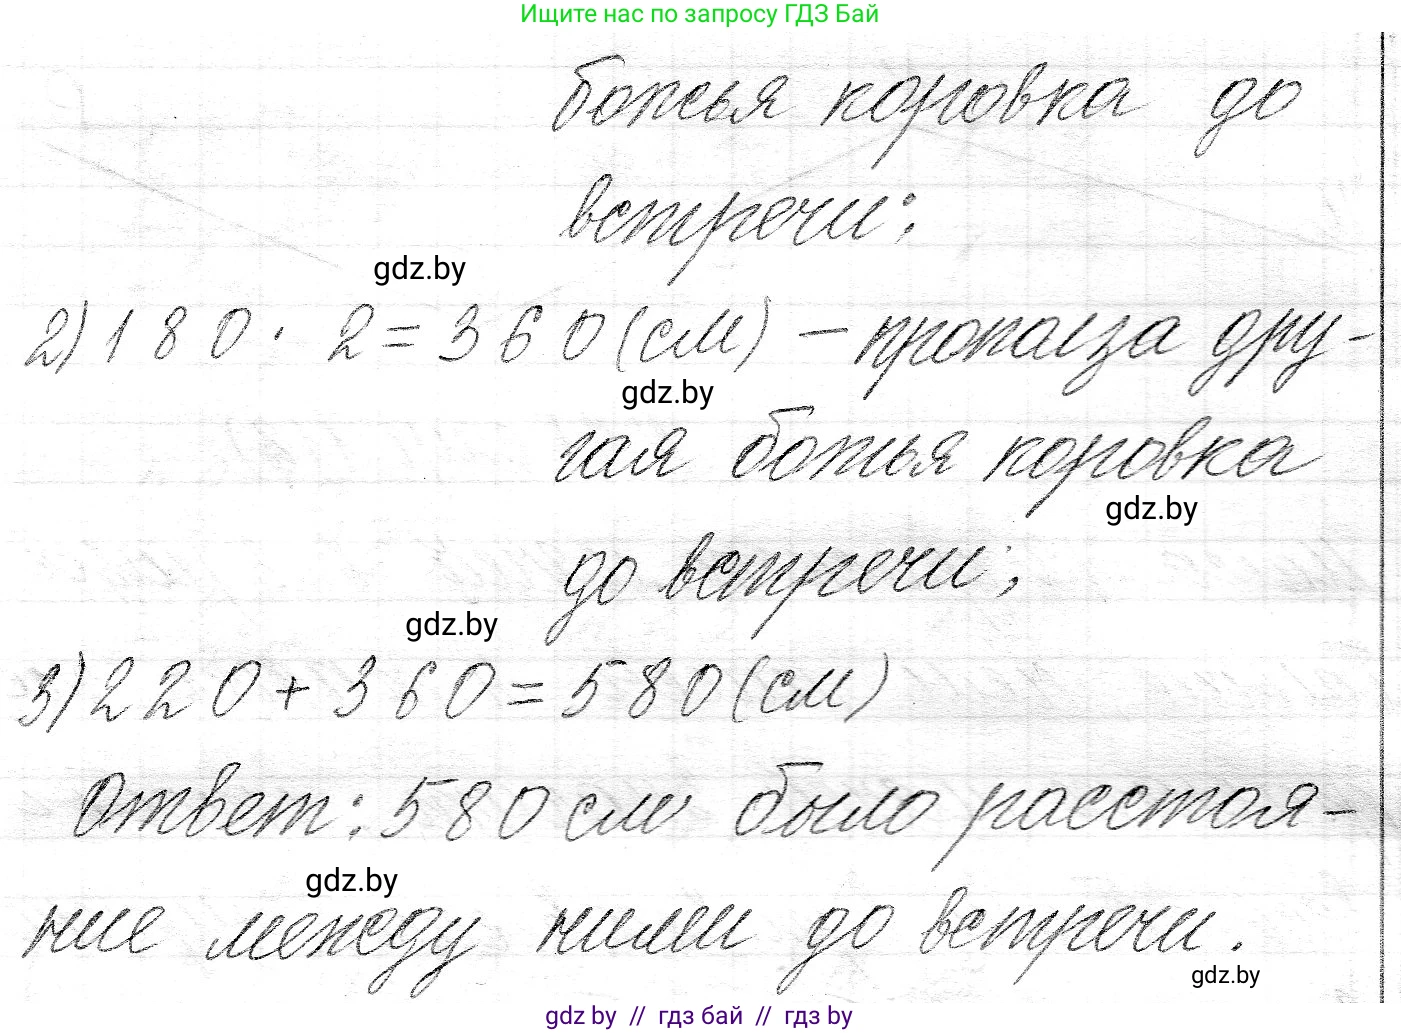 Ищите нас по запросу ГДЗ Бай
божья коровка до
встречи;
gdz.by
2) 180 · 2 = 360 (см) – проползла дру-
gdz.by
гая божья коровка
gdz.by
до встречи;
gdz.by
3) 220 + 360 = 580 (см)
Ответ: 580 см было расстоя-
gdz.by
ние между ними до встречи.
gdz.by
gdz by // гдз бай // гдз by